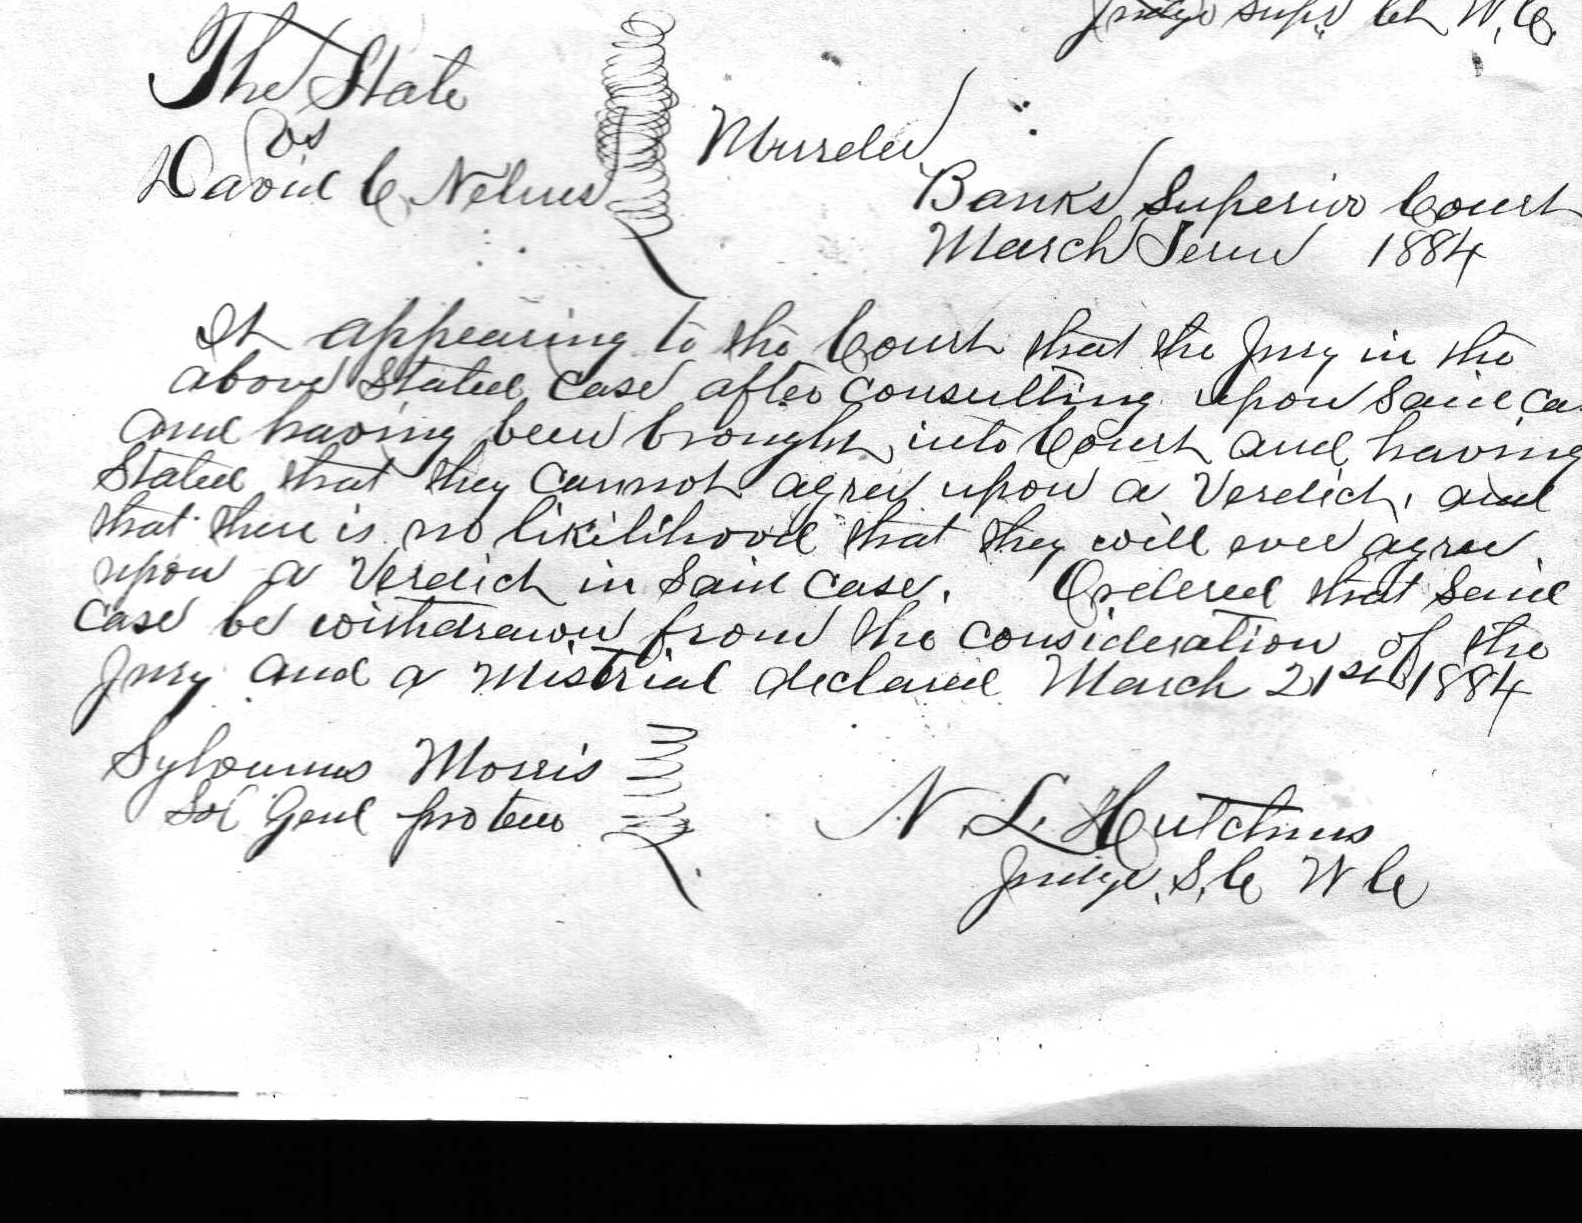 Judge Supr Ct W. C.
The State
vs
David C Nelms
Murder
Banks Superior Court
March Term 1884
It appearing to the Court that the Jury in the
above Stated case after consulting upon Said ca
and having been brought into Court and having
Stated that they cannot agree upon a Verdict, and
that there is no likilihood that they will ever agree
upon a Verdict in Said case. Ordered that Said
case be withdrawn from the consideration of the
Jury and a Mistrial declared March 21st 1884
Sylvanus Morris
Sol Genl protem
N. L. Hutchins
Judge, S, C W C